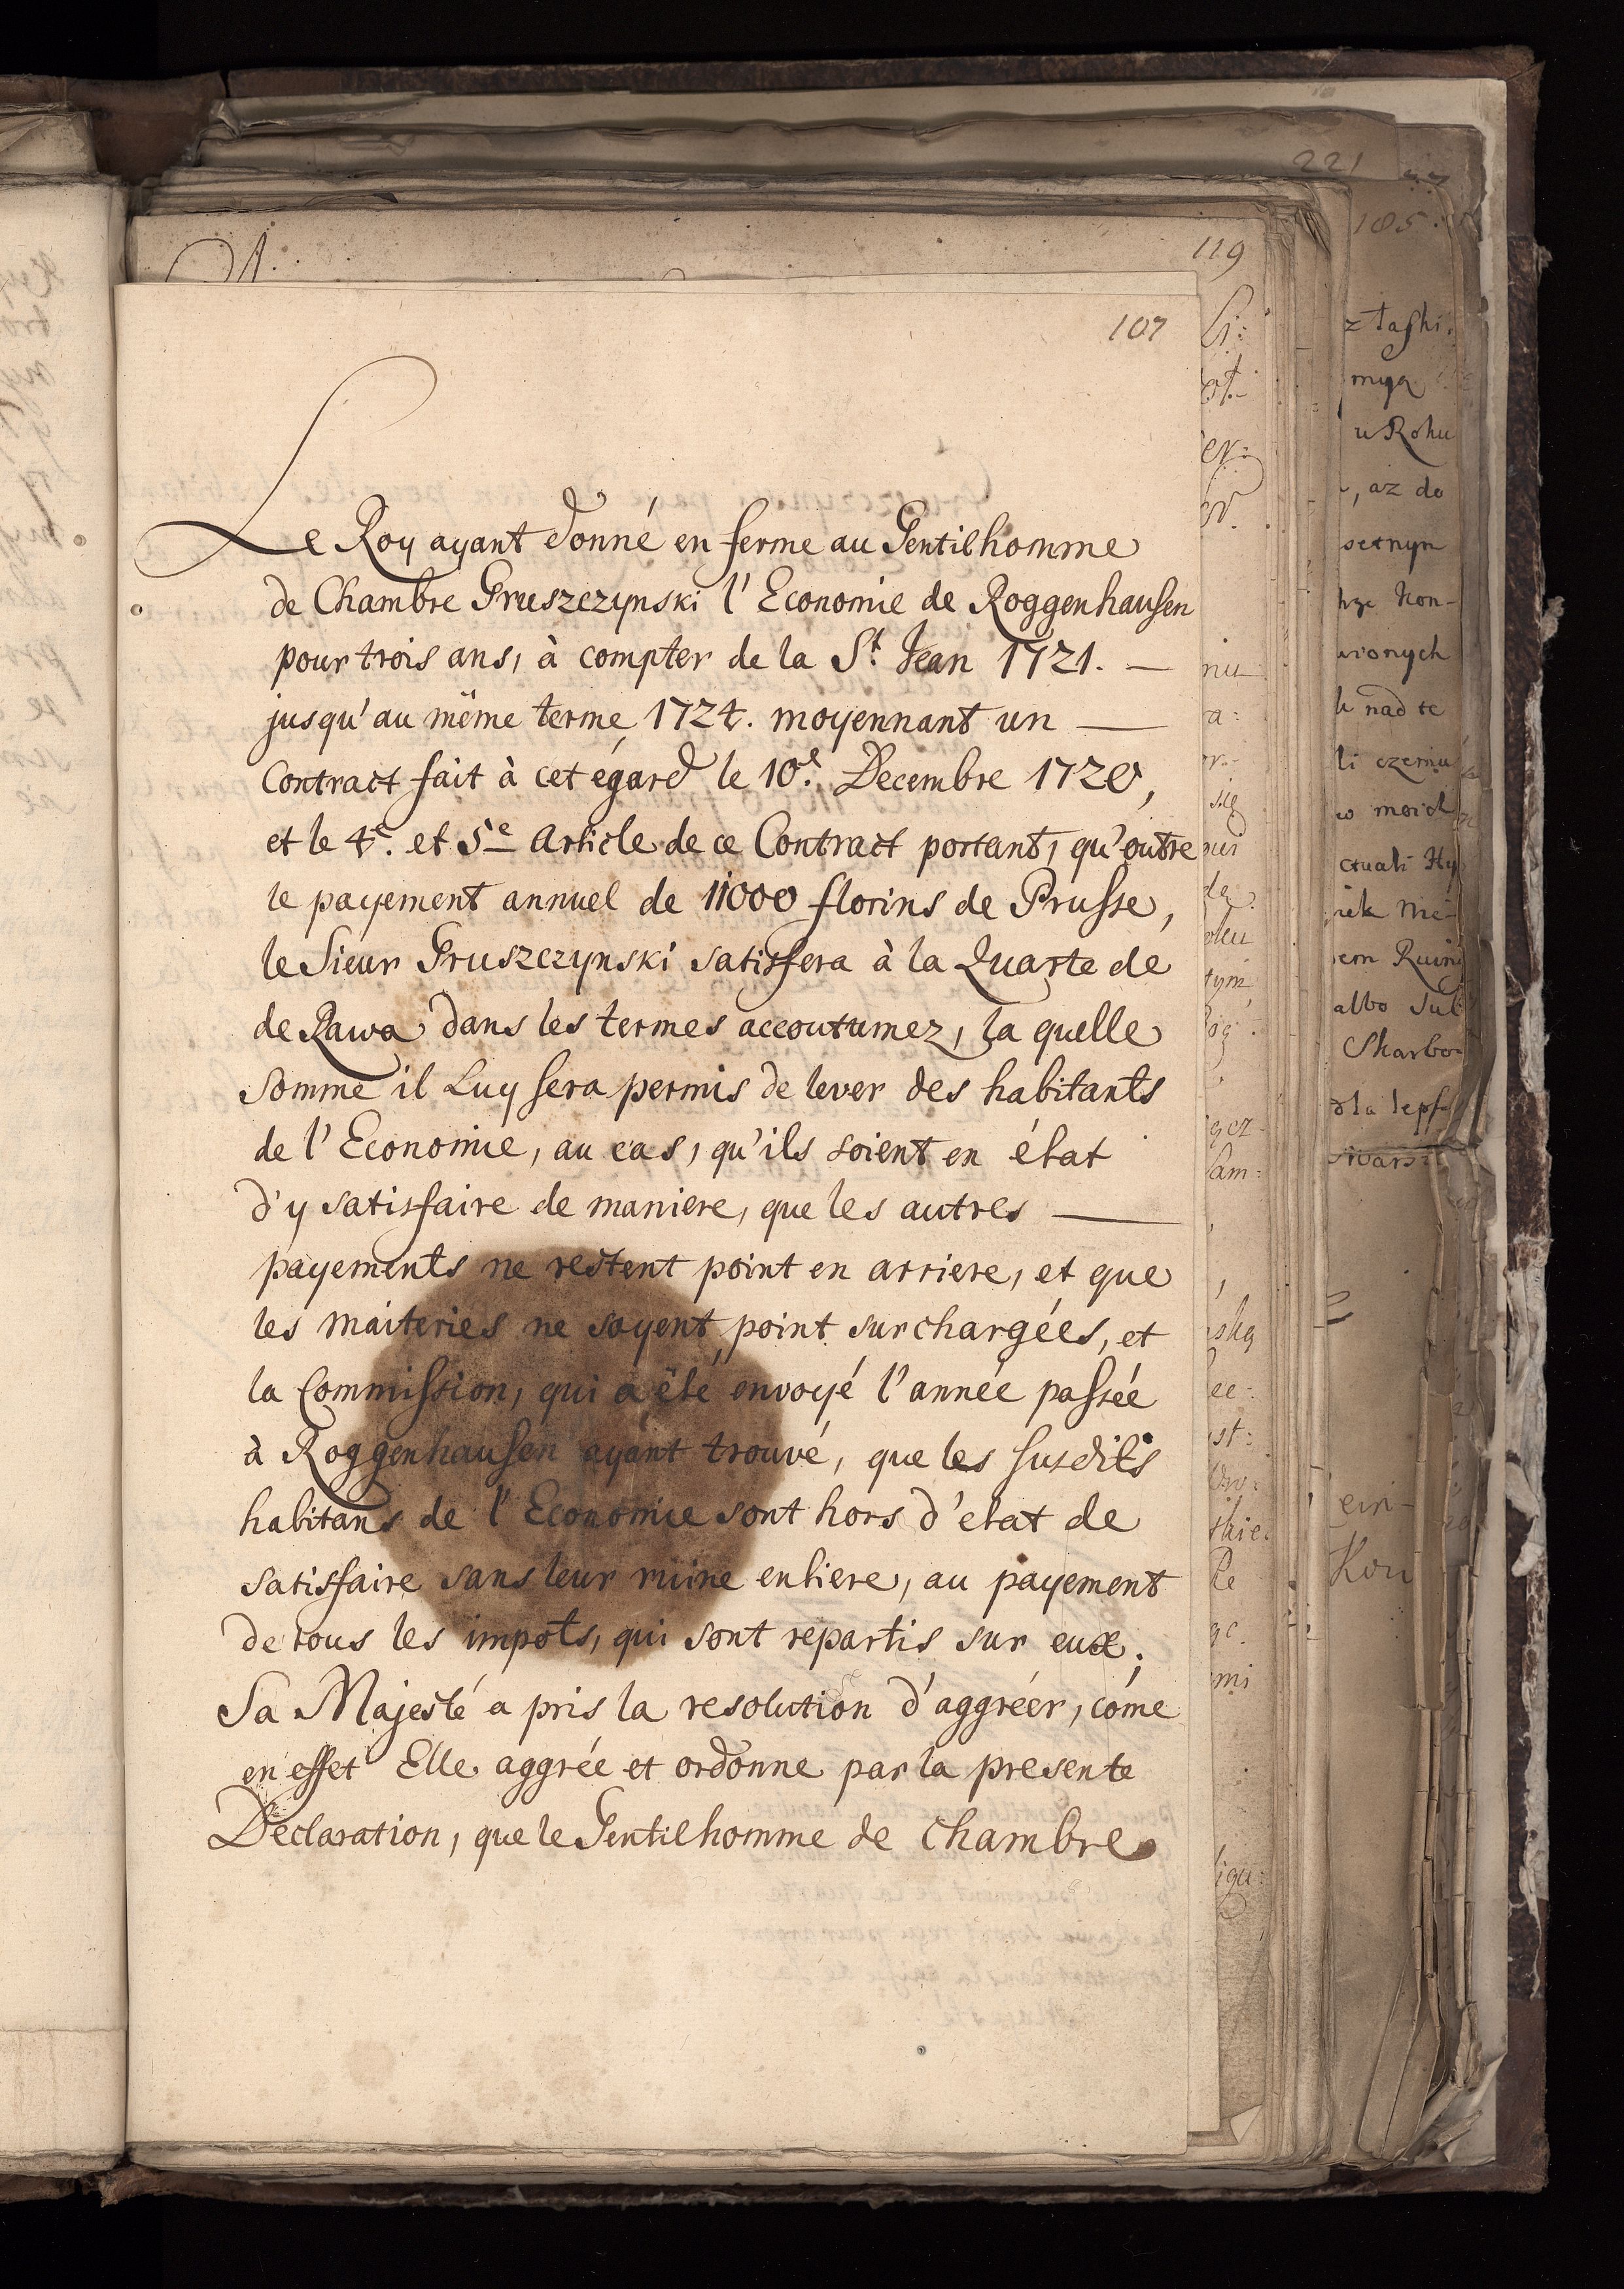 107
Le Roy ayant donné en ferme au Gentilhomme
de Chambre Gruszczynski l'Economie de Roggenhausen
pour trois ans, à compter de la St. Jean 1721. —
jusqu'au même terme 1724. moyennant un —
Contract fait à cet égard le 10e. Decembre 1720,
et le 4e. et 5e Article de ce Contract portant, qu'outre
le payement annuel de 11000 florins de Prusse,
le Sieur Gruszczynski satisfera à la Quarte de
de Rawa dans les termes accoutumez, la quelle
somme il Luy sera permis de lever des habitants
de l'Economie, au cas, qu'ils soient en état
d'y satisfaire de maniere, que les autres —
payements ne restent point en arriere, et que
les maiteries ne soyent point surchargées, et
la Commission, qui a êté envoyé l'année passée
à Roggenhausen ayant trouvé, que les susdits
habitans de l'Economie sont hors d'etat de
satisfaire sans leur ruine entiere, au payement
de tous les impots, qui sont repartis sur eux;
Sa Majesté a pris la resolution d'aggréer, come
en effet Elle aggrée et ordonne par la presente
Declaration, que le Gentilhomme de Chambre
119
221
185
z taski
myą
u Rohu
, az do
nad te
li czemu
albo
dla